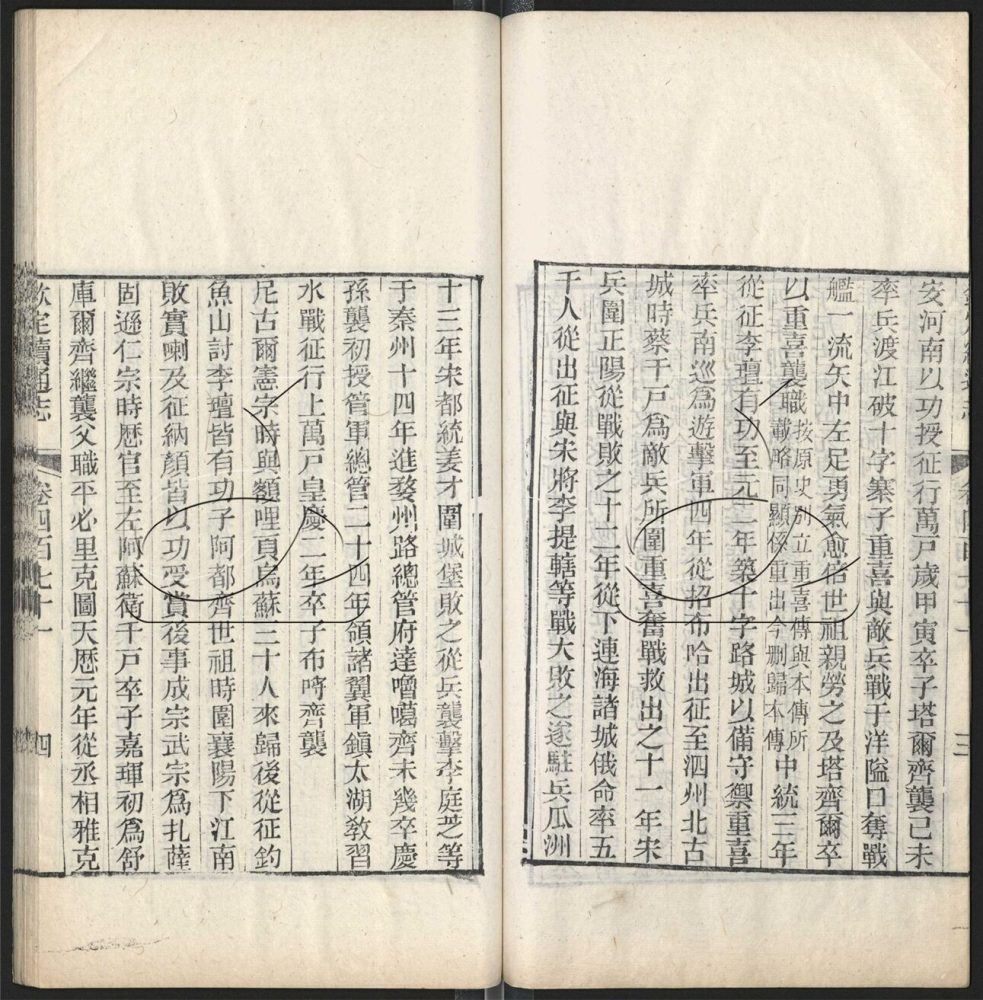 安河南以功授征行萬戸歲甲寅卒子塔爾齊襲己未
率兵渡江破十字寨子重喜與敵兵戰于洋隘口奪戰
艦一流矢中左足勇氣愈倍世祖親勞之及塔齊爾卒
以重喜襲職按原史別立重喜傳與本傳所載略同顯係重出今刪歸本傳中統三年
從征李璮有功至元二年築十字路城以備守禦重喜
率兵南巡爲遊擊軍四年從招布哈出征至泗州北古
城時蔡千戸爲敵兵所圍重喜奮戰救出之十一年宋
兵圍正陽從戰敗之十二年從下連海諸城俄命率五
千人從出征與宋將李提轄等戰大敗之遂駐兵瓜洲
十三年宋都統姜才圍城堡敗之從兵襲擊李庭芝等
于泰州十四年進婺州路總管府達嚕噶齊未幾卒慶
孫襲初授管軍總管二十四年領諸翼軍鎮太湖教習
水戰征行上萬戸皇慶二年卒子布哷齊襲
尼古爾憲宗時與額哩頁烏蘇三十人來歸後從征釣
魚山討李璮皆有功子阿都齊世祖時圍襄陽下江南
敗實喇及征納顏皆以功受賞後事成宗武宗爲扎薩
固遜仁宗時歴官至左阿蘇衞千戸卒子嘉琿初爲舒
庫爾齊繼襲父職平必里克圖天歴元年從丞相雅克
欽定續通志 卷四百七十一 四